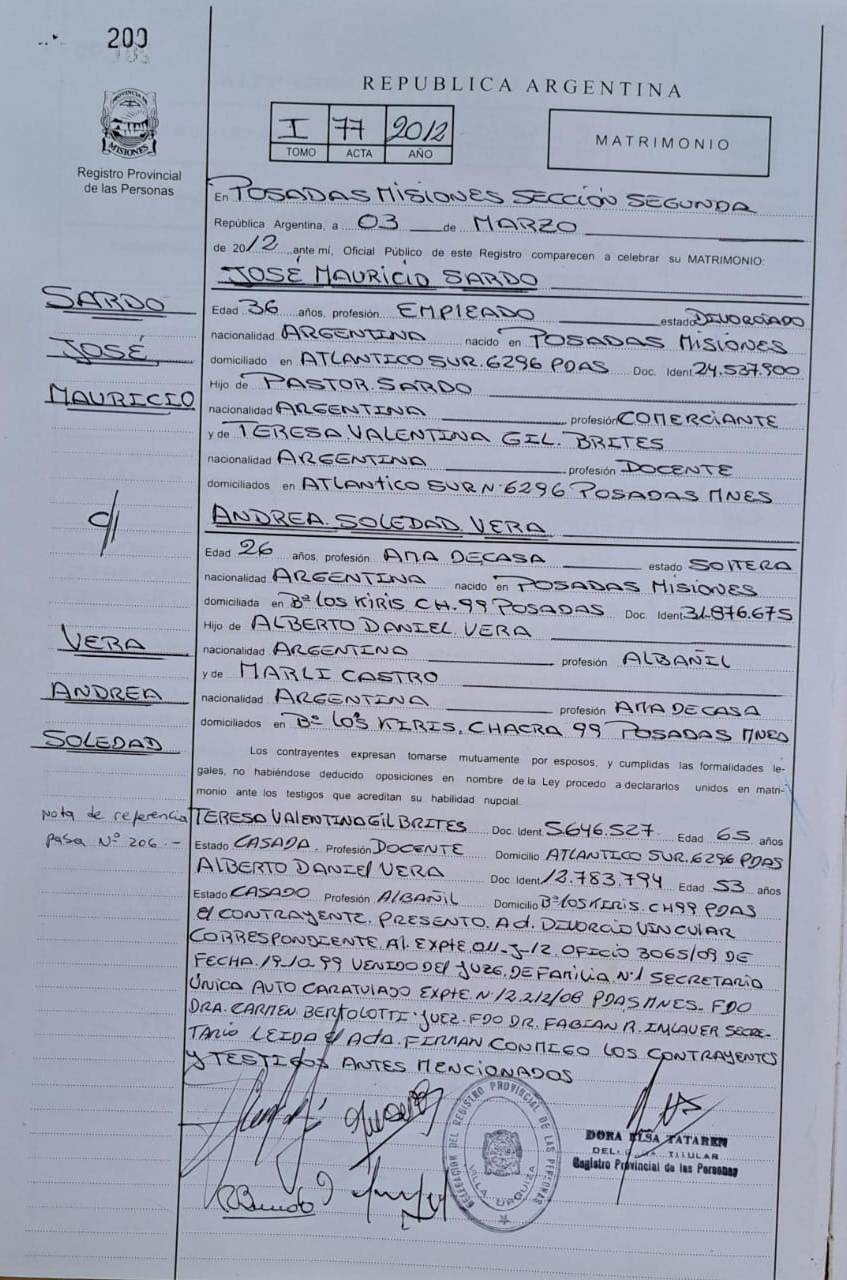 200
PROVINCIA DE
MISIONES
Registro Provincial
de las Personas
REPUBLICA ARGENTINA
I 77 2012
TOMO ACTA AÑO
MATRIMONIO
En POSADAS MISIONES SECCIÓN SEGUNDA
República Argentina, a 03 de MARZO
de 2012 ante mí, Oficial Público de este Registro comparecen a celebrar su MATRIMONIO:
JOSÉ MAURICIO SARDO
SARDO
JOSÉ
MAURICIO
Edad 36 años, profesión EMPLEADO estado DIVORCIADO
nacionalidad ARGENTINA nacido en POSADAS MISIONES
domiciliado en ATLANTICO SUR.6296 PDAS Doc. Ident. 24.537.900
Hijo de PASTOR.SARDO
nacionalidad ARGENTINA profesión COMERCIANTE
y de TERESA.VALENTINA GIL.BRITES
nacionalidad ARGENTINA profesión DOCENTE
domiciliados en ATLANTICO SUR N.6296 POSADAS MNES
C/
ANDREA.SOLEDAD.VERA
Edad 26 años, profesión AMA DECASA estado SOLTERA
nacionalidad ARGENTINA nacido en POSADAS MISIONES
domiciliada en Bº LOS KIRIS CH.99 POSADAS Doc. Ident. 31.876.675
Hijo de ALBERTO DANIEL.VERA
VERA
ANDREA
SOLEDAD
nacionalidad ARGENTINO profesión ALBAÑIL
y de MARLI CASTRO
nacionalidad ARGENTINA profesión AMA DE CASA
domiciliados en Bº LOS KIRIS. CHACRA 99 POSADAS MNES
Los contrayentes expresan tomarse mutuamente por esposos, y cumplidas las formalidades le-
gales, no habiéndose deducido oposiciones en nombre de la Ley procedo a declararlos unidos en matri-
monio ante los testigos que acreditan su habilidad nupcial.
Nota de referencia
pasa Nº 206.-
TERESA VALENTINA GIL BRITES Doc. Ident. 5.646.527 Edad 65 años
Estado CASADA. Profesión DOCENTE Domicilio ATLANTICO SUR.6296 PDAS
ALBERTO DANIEL VERA Doc. Ident. 12.783.794 Edad 53 años
Estado CASADO Profesión ALBAÑIL Domicilio Bº LOS KIRIS. CH99 PDAS
El CONTRAYENTE. PRESENTO. Ad. DIVORCIO VINCULAR
CORRESPONDIENTE Al. EXPTE 011-J-12. OFICIO 3065/09 DE
FECHA. 19.10.99 VENIDO DEL JUZG. DE FAMILIA. N.1 SECRETARIO
ÚNICA AUTO CARATULADO EXPTE. N.12.212/08 PDAS MNES. FDO
DRA. CARMEN BERTOLOTTI.JUEZ. FDO DR. FABIAN R. IMLAUER SECRE-
TARIO LEIDA El ACTA. FIRMAN CONMIGO LOS CONTRAYENTES
Y TESTIGOS ANTES MENCIONADOS
DELEGACION DEL REGISTRO PROVINCIAL DE LAS PERSONAS
VILLA URQUIZA
DORA ELSA TATAREN
TITULAR
Registro Provincial de las Personas